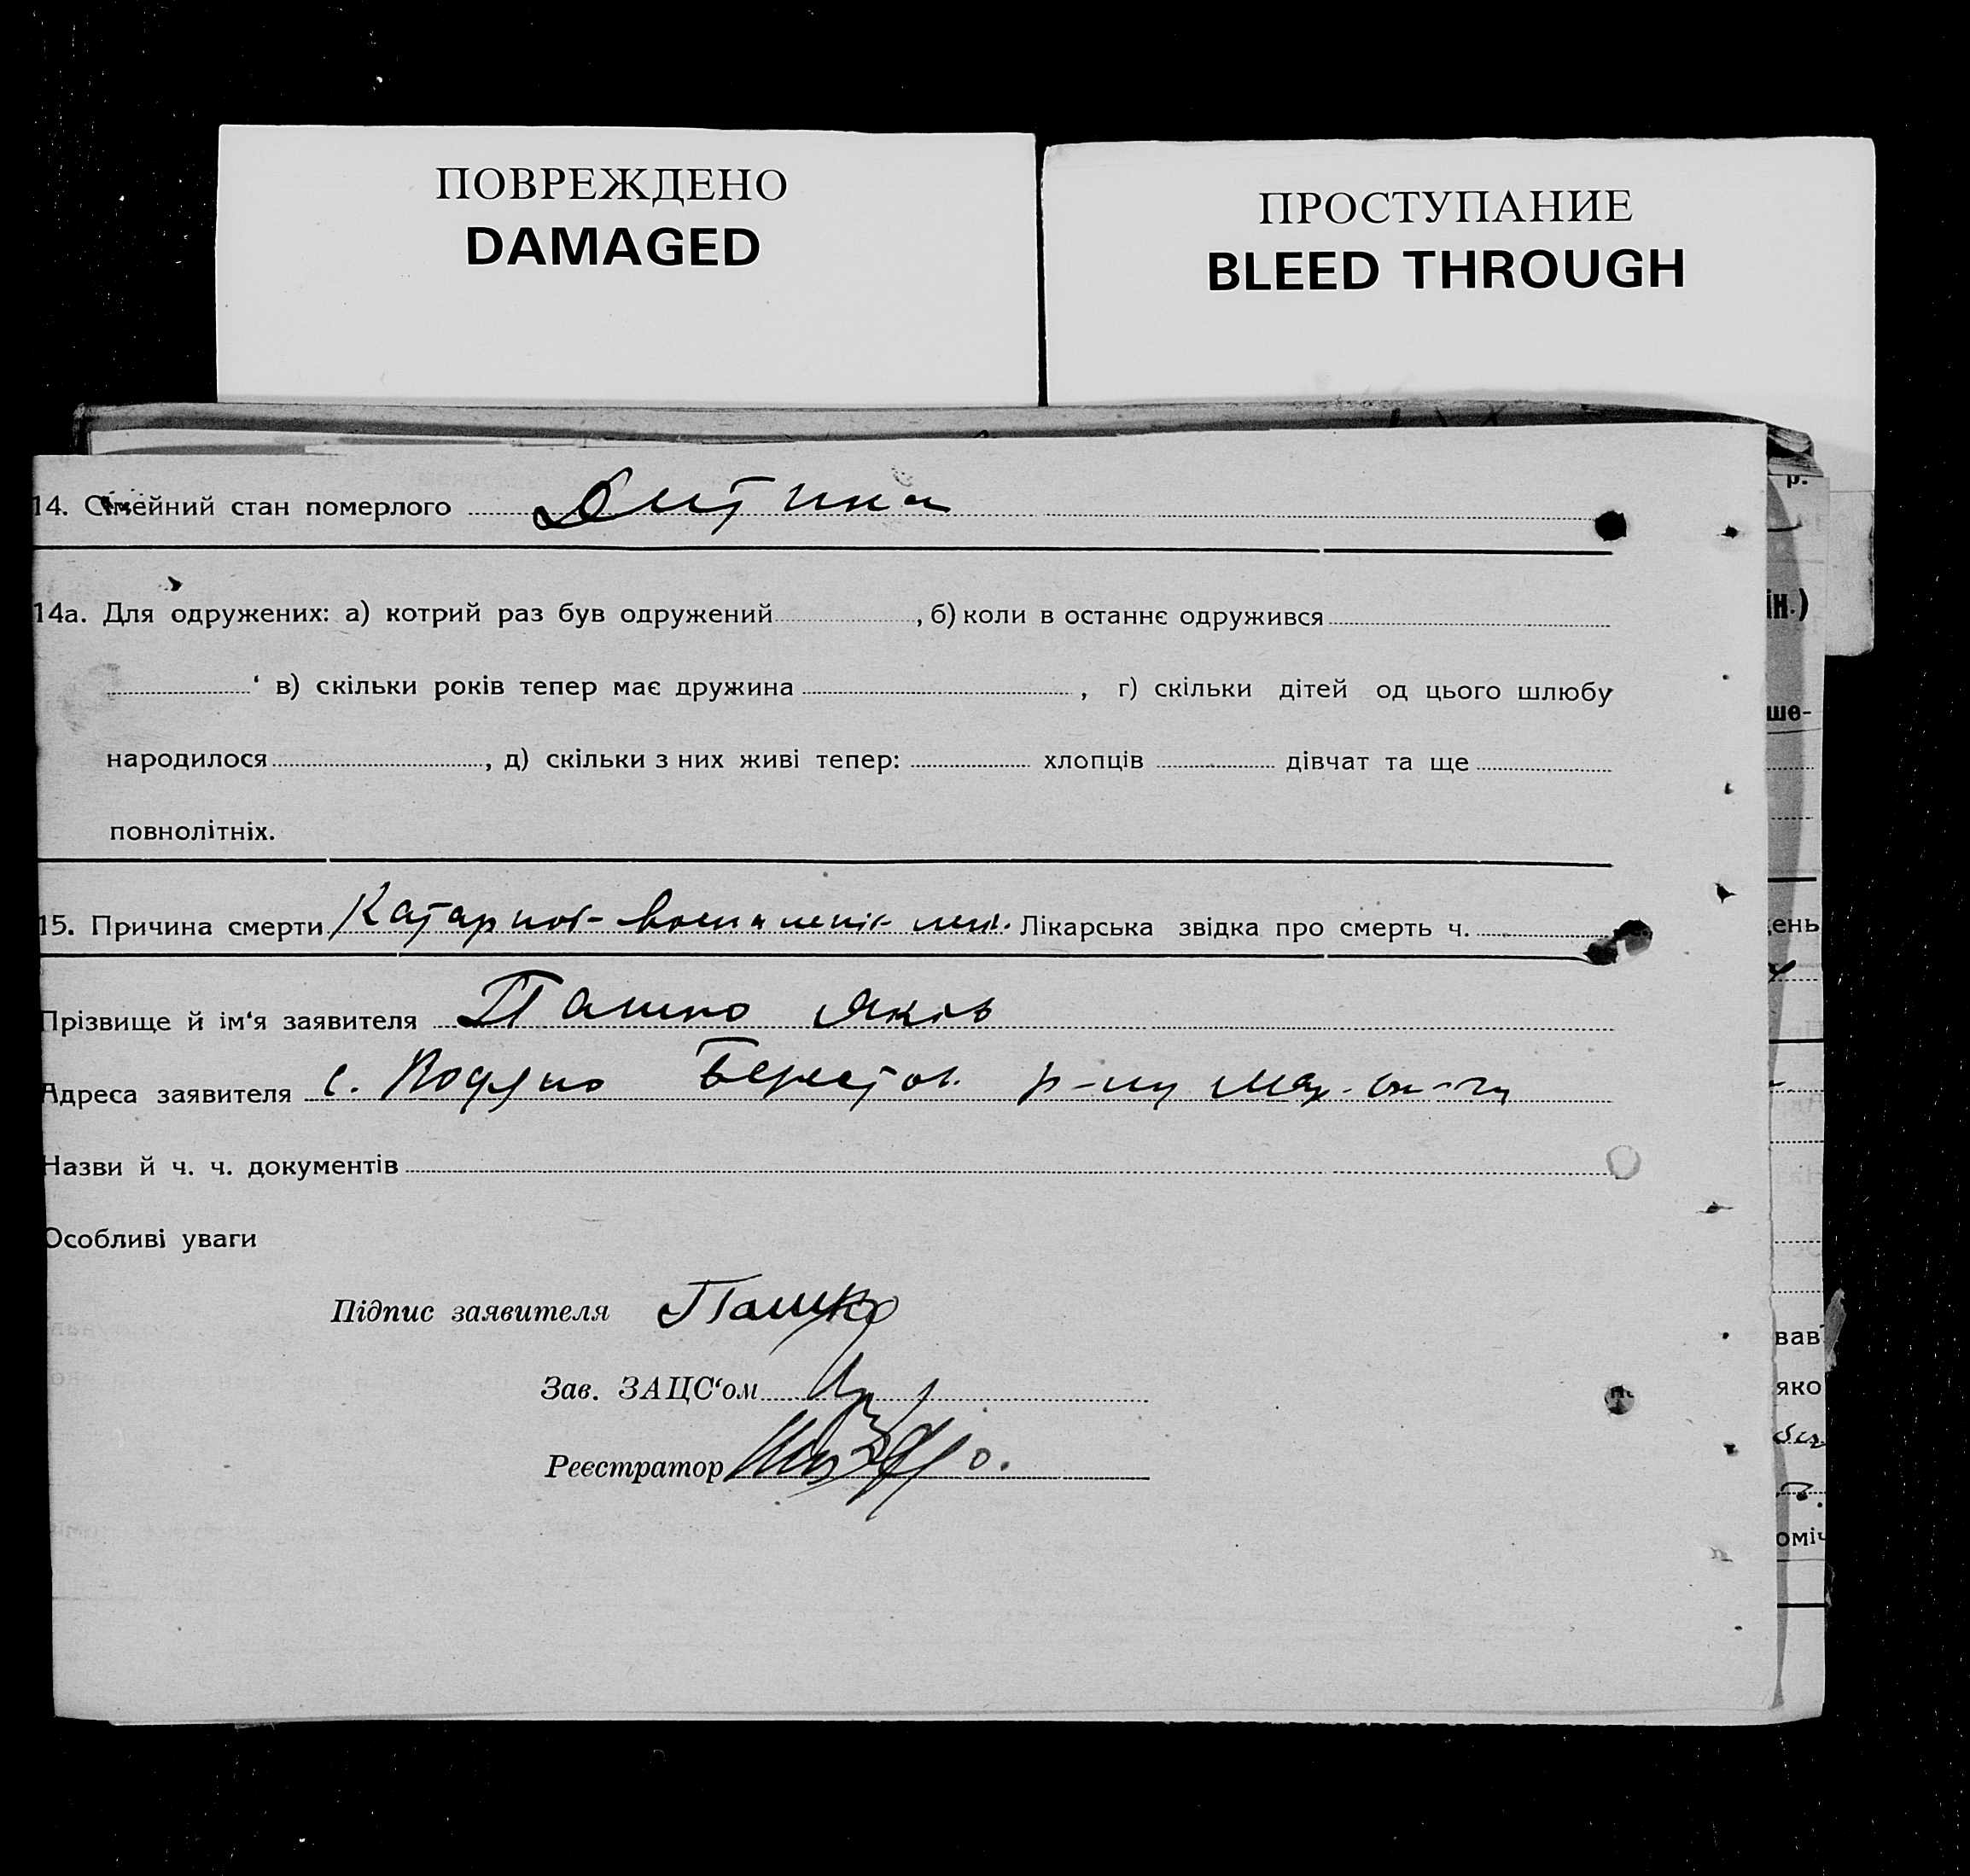 ПОВРЕЖДЕНО
DAMAGED
ПРОСТУПАНИЕ
BLEED THROUGH
14. Сімейний стан померлого Дитина
14а. Для одружених: а) котрий раз був одружений , б) коли в останнє одружився
в) скільки років тепер має дружина , г) скільки дітей од цього шлюбу
народилося , д) скільки з них живі тепер: хлопців дівчат та ще
повнолітніх.
15. Причина смерти Лікарська звідка про смерть ч.
Прізвище й ім‘я заявителя Пашко Яков
Адреса заявителя с. Водяно Берестов. р-ну
Назви й ч. ч. документів
Особливі уваги
Підпис заявителя Пашко
Зав. ЗАЦС‘ом
Реєстратор